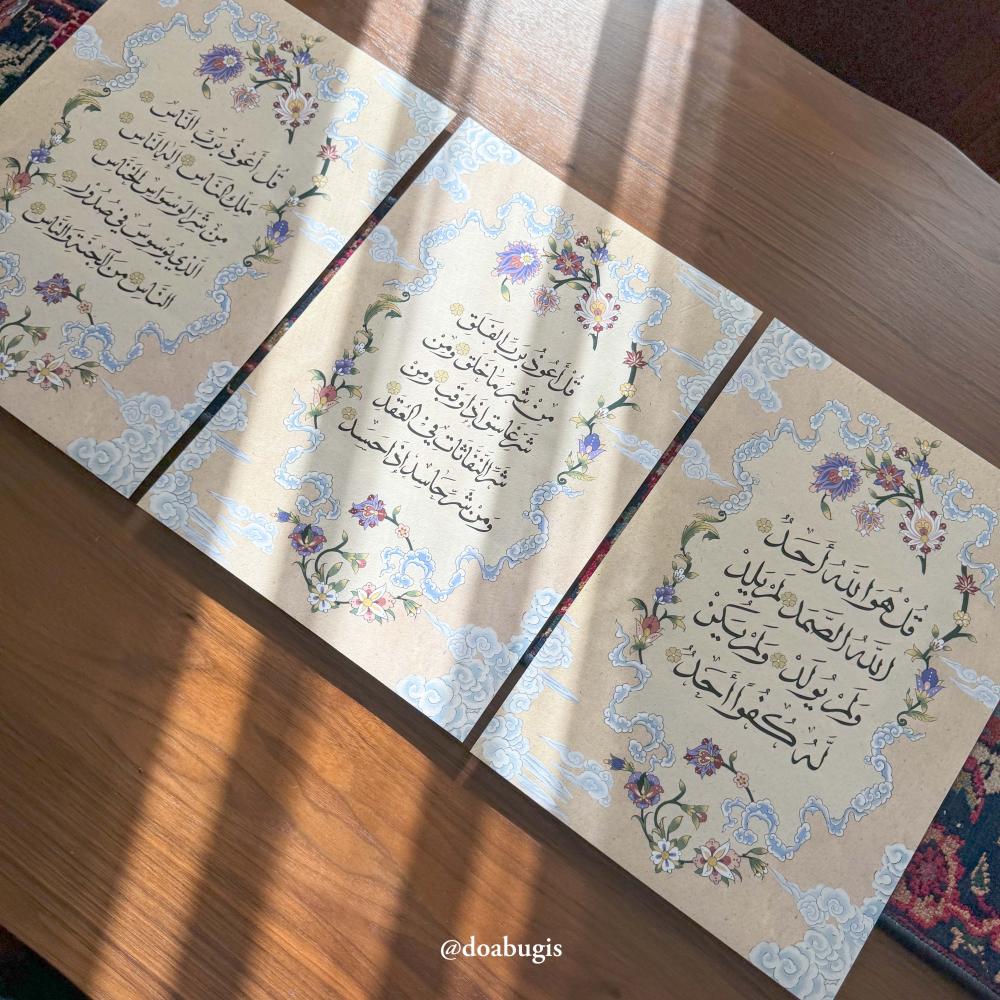 قُلْ هُوَ اللَّهُ أَحَدٌ
اللَّهُ الصَّمَدُ لَمْ يَلِدْ
وَلَمْ يُولَدْ وَلَمْ يَكُنْ
لَهُ كُفُوًا أَحَدٌ
قُلْ أَعُوذُ بِرَبِّ الْفَلَقِ
مِنْ شَرِّ مَا خَلَقَ وَمِنْ
شَرِّ غَاسِقٍ إِذَا وَقَبَ وَمِنْ
شَرِّ النَّفَّاثَاتِ فِي الْعُقَدِ
وَمِنْ شَرِّ حَاسِدٍ إِذَا حَسَدَ
قُلْ أَعُوذُ بِرَبِّ النَّاسِ
مَلِكِ النَّاسِ إِلَهِ النَّاسِ
مِنْ شَرِّ الْوَسْوَاسِ الْخَنَّاسِ
الَّذِي يُوَسْوِسُ فِي صُدُورِ
النَّاسِ مِنَ الْجِنَّةِ وَالنَّاسِ
@doabugis